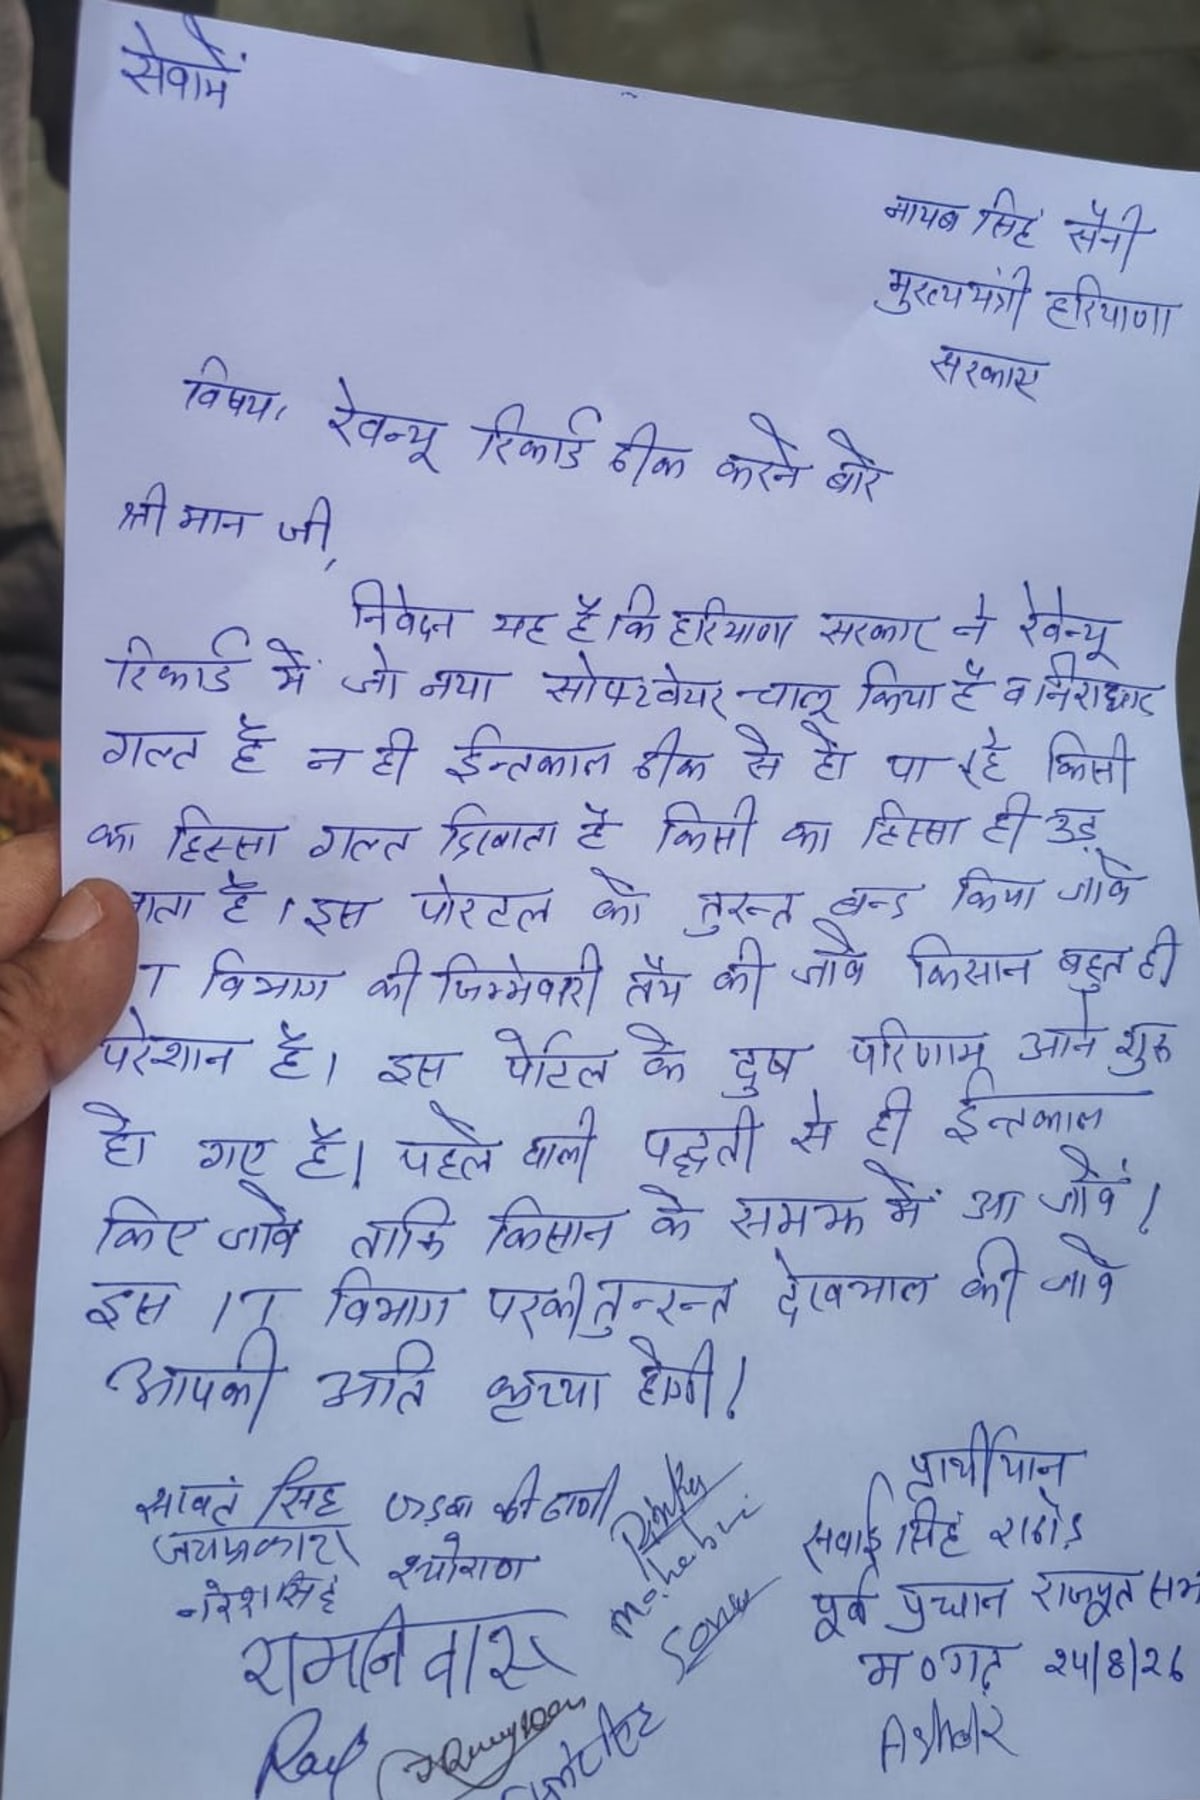 सेवामें
नायब सिंह सैनी
मुख्यमंत्री हरियाणा
सरकार
विषय, रेवन्यू रिकार्ड ठीक करने बारे
श्री मान जी,
निवेदन यह है कि हरियाणा सरकार ने रेवेन्यू
रिकार्ड में जो नया सोफ्टवेयर चालू किया है व निराधार
गल्त है न ही ईन्तकाल ठीक से हो पा रहे किसी
का हिस्सा गल्त दिखाता है किसी का हिस्सा ही उड़
जाता है। इस पोरटल को तुरन्त बन्ड किया जावे
T विभाग की जिम्मेवारी तैय की जावे किसान बहुत ही
परेशान है। इस पोर्टल के दुष परिणाम आने शुरू
हो गए है। पहले वाली पद्धती से ही ईन्तकाल
किए जावे ताकि किसान के समझ में आ जावें।
इस IT विभाग पर की तुन्रन्त देखभाल की जावे
आपकी अति कृप्या होगी।
प्रार्थीयान
सवाई सिंह राठोड़
पूर्व प्रधान राजपूत सभ
म०गढ़ २५/8/२6
सावंत सिंह
जयप्रकाश
नरेश सिंह श्योराण
रामनिवास
Rinku
Sonu